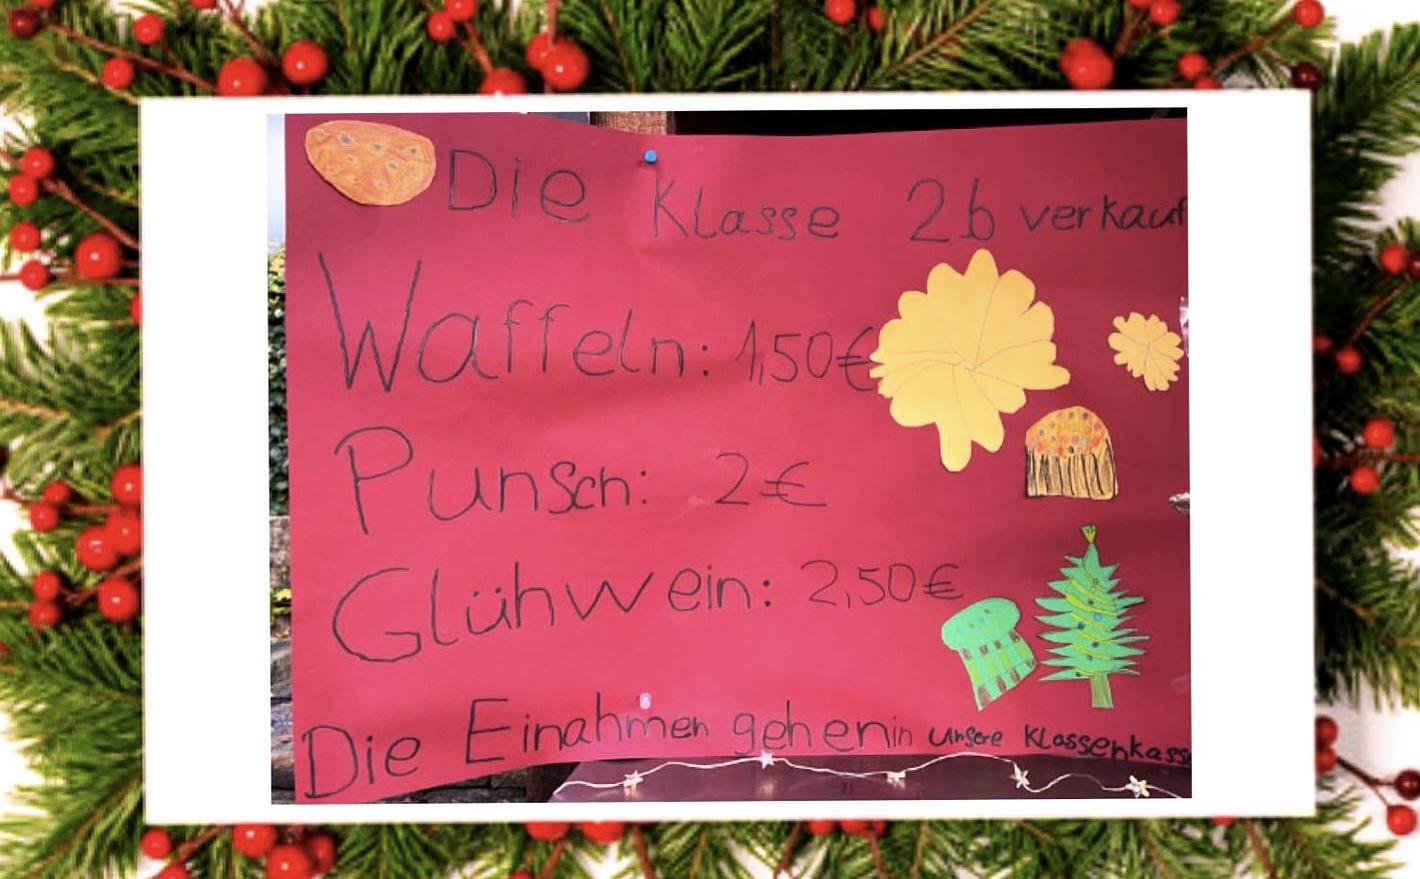 Die Klasse 2b verkauf
Waffeln: 1,50€
Punsch: 2€
Glühwein: 2,50€
Die Einahmen gehen in unsere Klassenkass